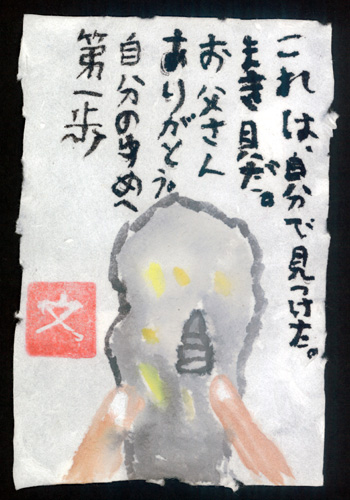 これは、自分で見つけた。
まき貝だ。
お父さん
ありがとう。
自分のゆめへ
第一歩
文